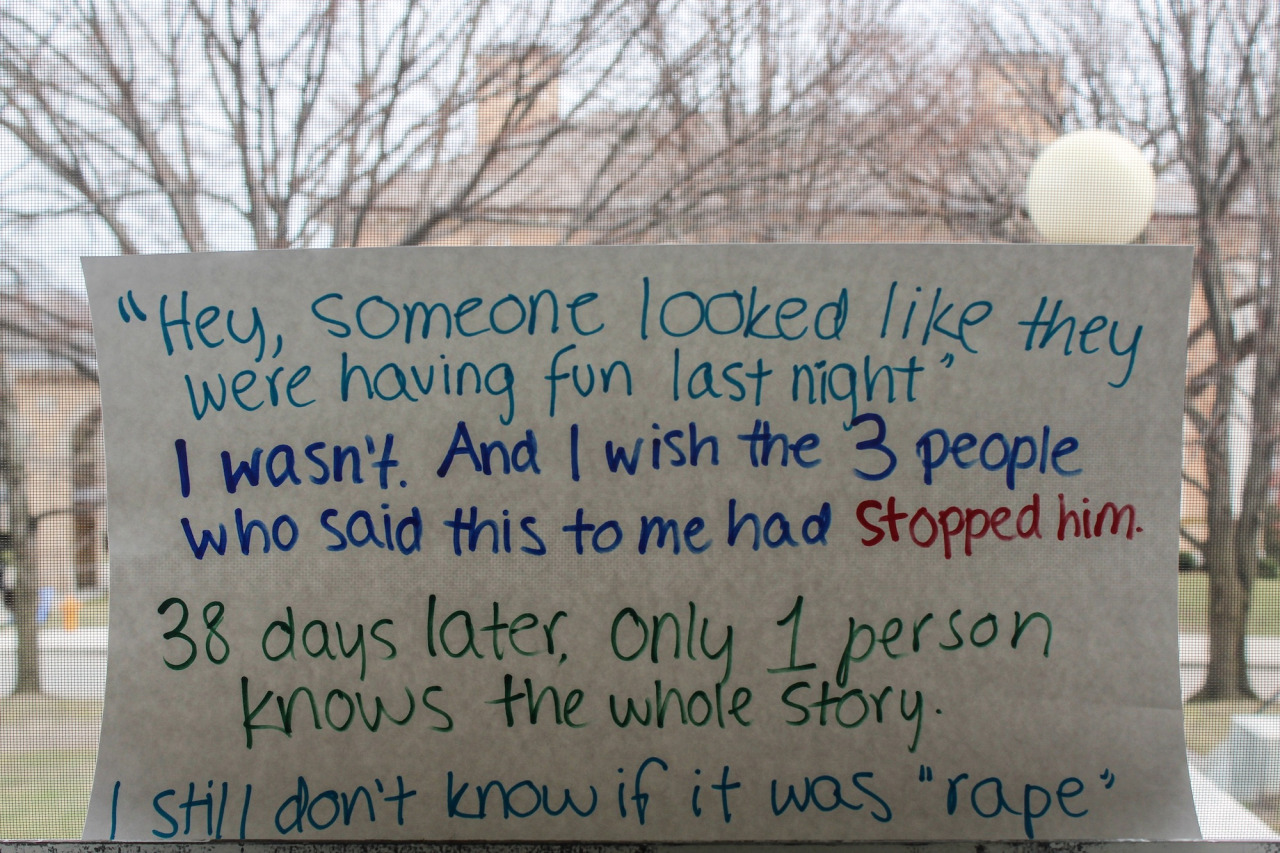 "Hey, someone looked like they
were having fun last night"
I wasn't. And I wish the 3 people
who said this to me had stopped him.
38 days later, only 1 person
knows the whole story.
I still don't know if it was "rape"